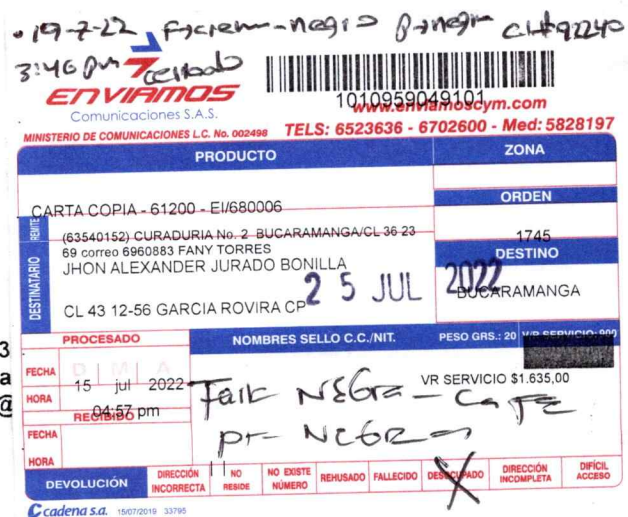 19-7-22 F/crema-negro P/negra
3:46 pm cerrado
ENVIAMOS
Comunicaciones S.A.S.
1010959049101
www.enviamoscym.com
MINISTERIO DE COMUNICACIONES L.C. No. 002498
TELS: 6523636 - 6702600 - Med: 5828197
PRODUCTO
ZONA
CARTA COPIA - 61200 - EI/680006
ORDEN
1745
REMITE
(63540152) CURADURIA No. 2 BUCARAMANGA/CL 36 23
69 correo 6960883 FANY TORRES
DESTINATARIO
JHON ALEXANDER JURADO BONILLA
CL 43 12-56 GARCIA ROVIRA CP
25 JUL 2022
DESTINO
BUCARAMANGA
PROCESADO
NOMBRES SELLO C.C./NIT.
PESO GRS.: 20
V/R SERVICIO: 900
FECHA
D M A
15 jul 2022
HORA
04:57 pm
VR SERVICIO $1.635,00
NEGra - CAFE
pt- NEGRA
RECIBIDO
FECHA
HORA
3
a
@
DEVOLUCIÓN
DIRECCIÓN INCORRECTA
NO RESIDE
NO EXISTE NÚMERO
REHUSADO
FALLECIDO
DESOCUPADO
X
DIRECCIÓN INCOMPLETA
DIFÍCIL ACCESO
cadena s.a. 15/07/2019 33795